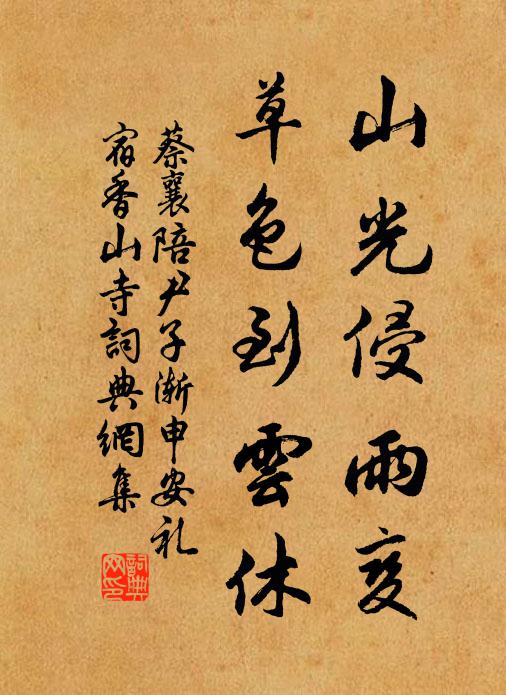 山光侵雨变
草色到雲休
蔡襄陪尹子渐申安礼
宿香山寺詞典網集
詞典网印